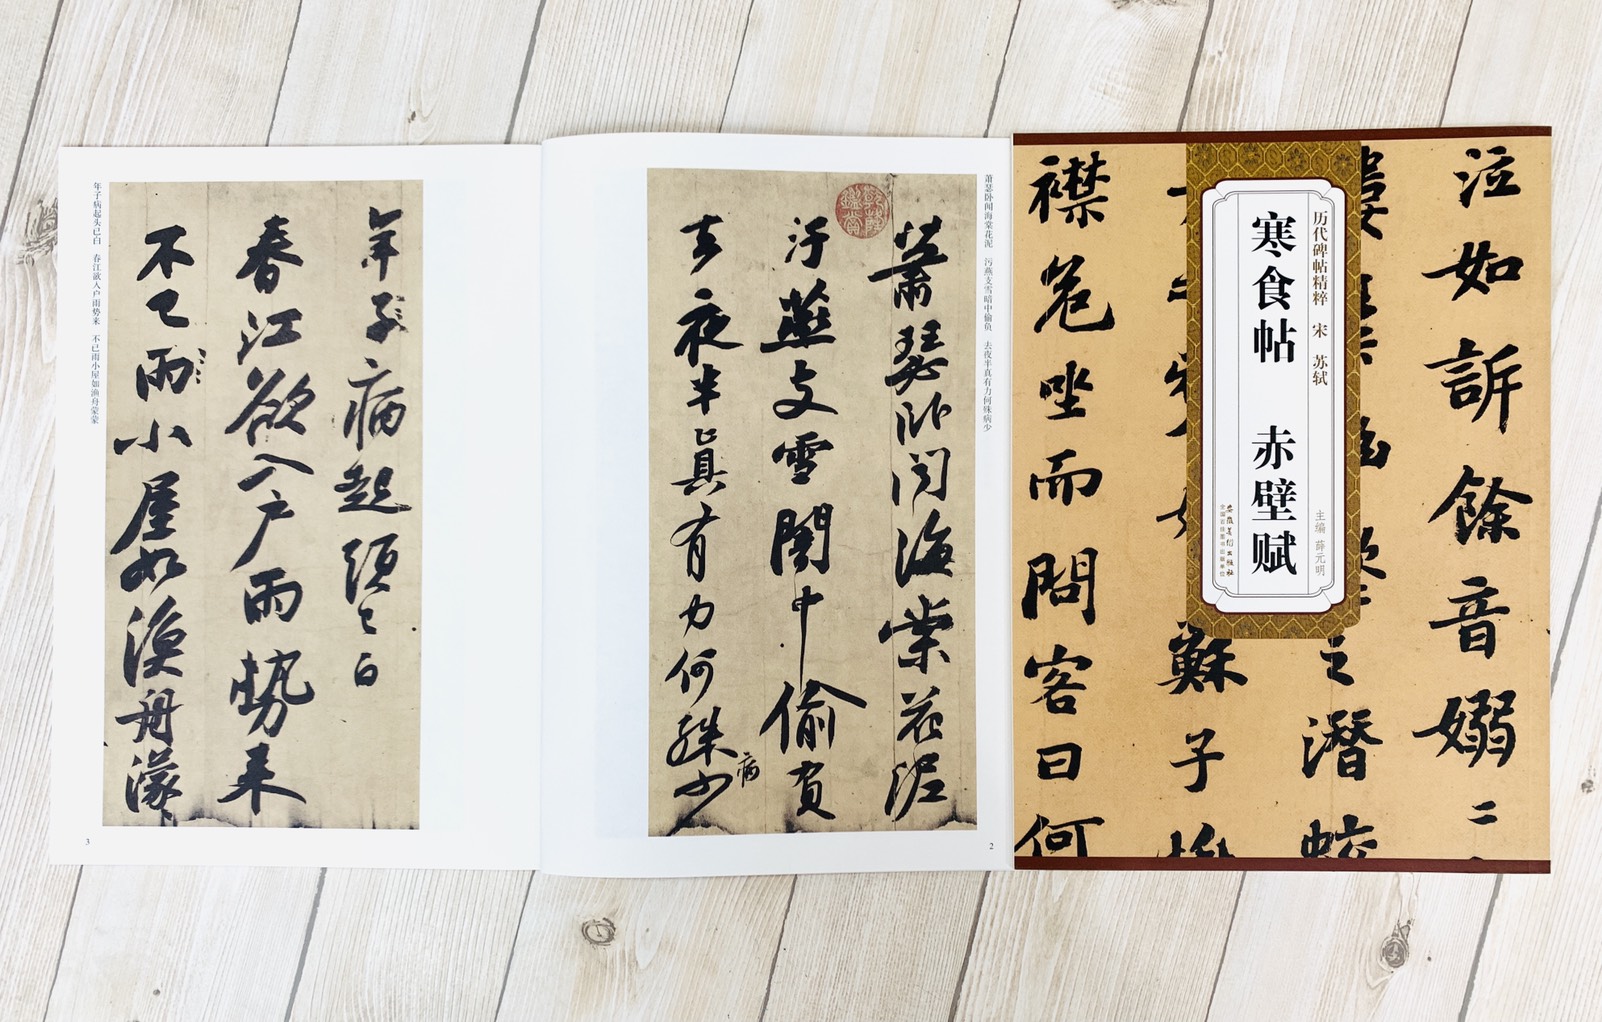 注如訴餘音嫋二
之潛蛟
蘇子
襟危坐而問客曰何
历代碑帖精粹 宋 苏轼
寒食帖 赤壁赋
主编 薛元明
安徽美术出版社
全国百佳图书出版单位
萧瑟卧闻海棠花泥 污燕支雪暗中偷负 去夜半真有力何殊病少
蕭瑟卧闻海棠花泥
汙燕支雪闇中偷負
去夜半真有力何殊少
病
2
年子病起頭已白
春江欲入户雨勢来
不已雨小屋如渔舟濛
年子病起头已白 春江欲入户雨势来 不已雨小屋如渔舟蒙蒙
3